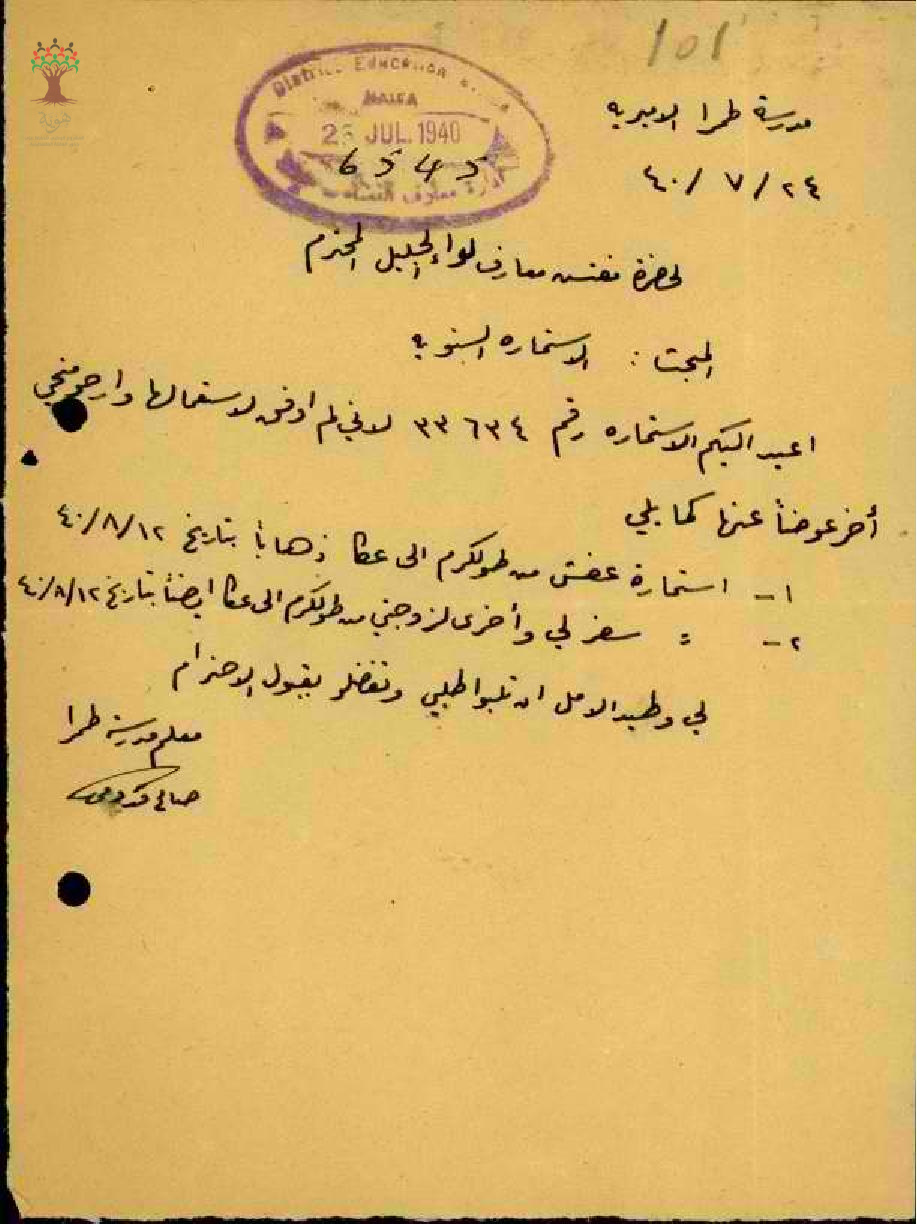 101
District Education
HAIFA
26 JUL. 1940
6545
مدرسة طمرا الاميريه
٤٠/٧/٢٤
لحضرة مفتش معارف لواء الجليل المحترم
المبحث : الاستماره السنويه
اعيد اليكم الاستماره رقم ٣٣٦٣٤ لاني لم اوفق لاستعمالها وارجو منحي
أخر عوضاً عنها كما يلي
١- استمارة عفش من طولكرم الى عكا ذهاباً بتاريخ ٤٠/٨/١٢
٢- = سفر لي وأخرى لزوجتي من طولكرم الى عكا ايضاً بتاريخ ٤٠/٨/١٢
لي وطيد الامل ان تلبوا طلبي وتفضلو بقبول الاحترام
معلم مدرسة طمرا
صالح
هوية